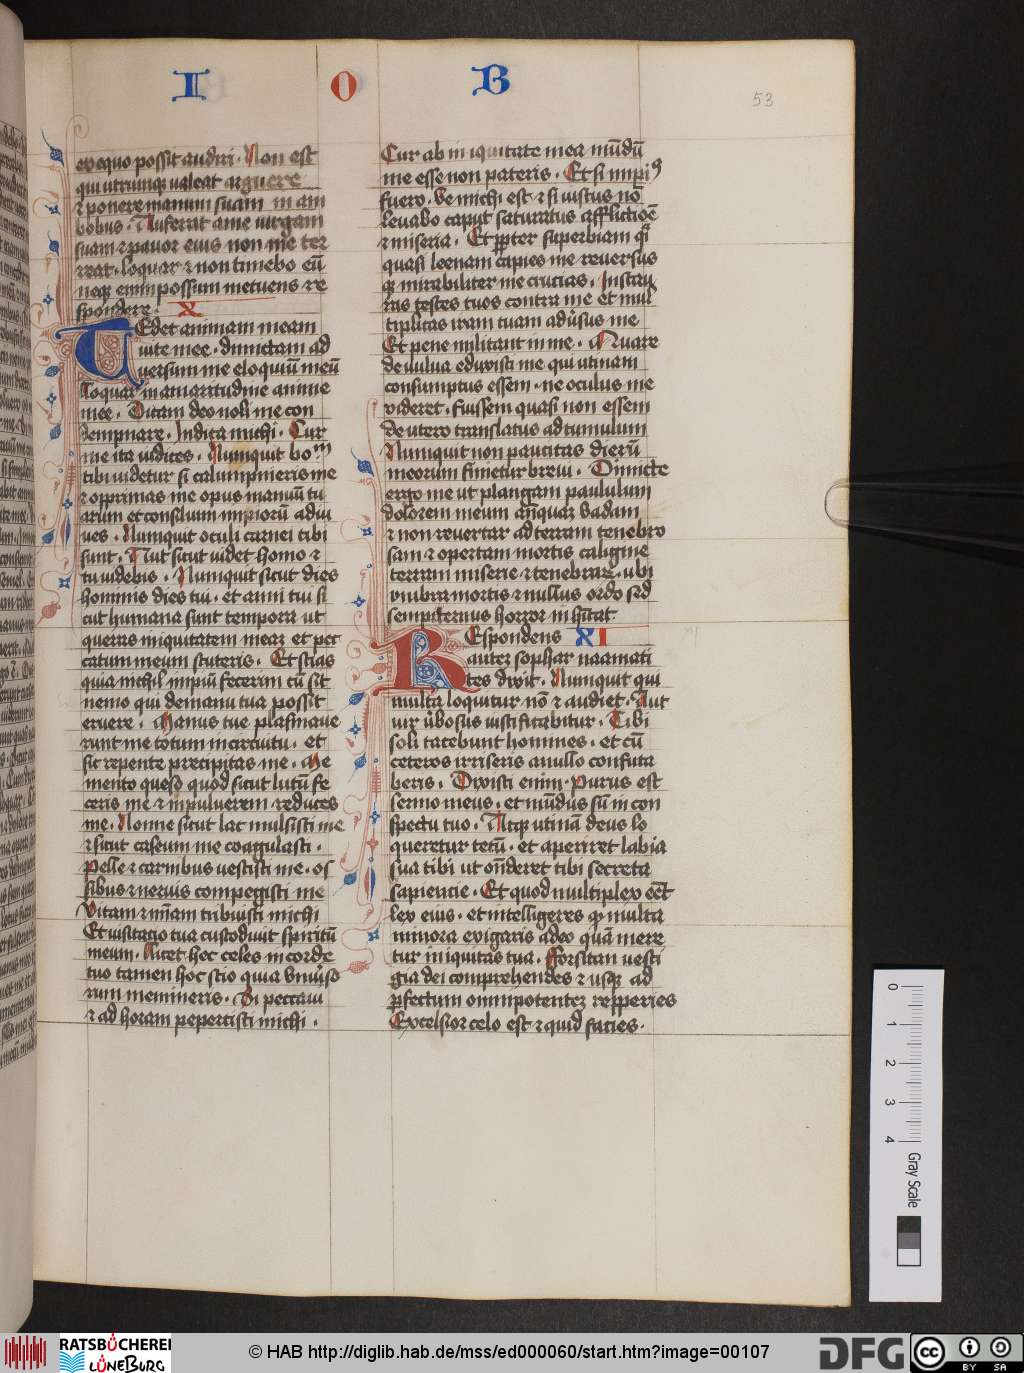 I O B
53
ex equo possit audiri. Non est
qui utrumque valeat arguere
et ponere manum suam in am
bobus. Auferat a me virgam
suam et pavor eius non me ter
reat. loquar et non timebo eū
neque enim possum metuens re
spondere. X
Tedet animam meam
vite mee. dimittam ad
versum me eloquiū meū
loquar in amaritudine anime
mee. Dicam deo noli me con
dempnare. Indica michi. Cur
me ita iudices. Numquit bom
tibi videtur si calumpnieris me
et opprimas me opus manuū tu
arum et consilium impiorū adiu
ves. Numquit oculi carnei tibi
sunt. Aut sicut videt homo et
tu videbis. Numquit sicut dies
hominis dies tui. et anni tui si
cut humana sunt tempora ut
queras iniquitatem meaz et pec
catum meum scuteris. Et scias
quia nichil impiū fecerim cū sit
nemo qui de manu tua possit
eruere. Manus tue plasmave
runt me totum in circuitu. et
sic repente precipitas me. Me
mento queso quod sicut lutū fe
ceris me et in pulverem reduces
me. Nonne sicut lac mulsisti me
et sicut caseum me coagulasti.
Pelle et carnibus vestisti me. os
sibus et nervis compegisti me
Vitam et mīam tribuisti michi
Et visitacio tua custodivit spiritū
meum. Licet hoc celes in corde
tuo tamen hoc scio quia univso
rum memineris. Si peccavi
et ad horam pepercisti michi.
Cur ab in iquitate mea mūdū
me esse non pateris. Et si impi9
fuero. ve michi est et si iustus nō
levabo caput saturatus afflictiōe
et miseria. Et ppter superbiam qsi
quasi leenam capies me reversus
que mirabiliter me crucias. Instau
ras testes tuos contra me et mul
tiplicas iram tuam advsus me
Et pene militant in me. Quare
de vulva eduxisti me qui utinam
consumptus essem. ne oculus me
videret. fuissem quasi non essem
de utero translatus ad tumulum
Numquit non paucitas dierū
meorum finietur brevi. Dimitte
ergo me ut plangam paululum
dolorem meum anquaz vadam
et non revertar ad terram tenebro
sam et opertam mortis caligine
terram miserie et tenebraz. ubi
umbra mortis et nullus ordo sed
sempiternus horror in hitat
Respondens XI
autez sophar naamati
tes dixit. Numquit qui
multa loquitur nō et audiet. Aut
vir vbosus iustificabitur. Tibi
soli tacebunt homines. et cū
ceteros irriseris a nullo confuta
beris. Dixisti enim. Purus est
sermo meus. et mūdus sū in con
spectu tuo. Atque utinā deus lo
queretur tecū. et aperiret labia
sua tibi ut ondēret tibi secreta
sapiencie. Et quod multiplex eēt
lex eius. et intelligeres q multa
minora exigaris a deo quā mere
tur iniquitas tua. Forsitan vesti
gia dei comprehendes et usque ad
pfectum omnipotentez repperies
Excelsior celo est et quid facies.
xi
0 1 2 3 4
Gray Scale
RATSBÜCHEREI LÜNEBURG
© HAB http://diglib.hab.de/mss/ed000060/start.htm?image=00107
DFG
cc BY SA